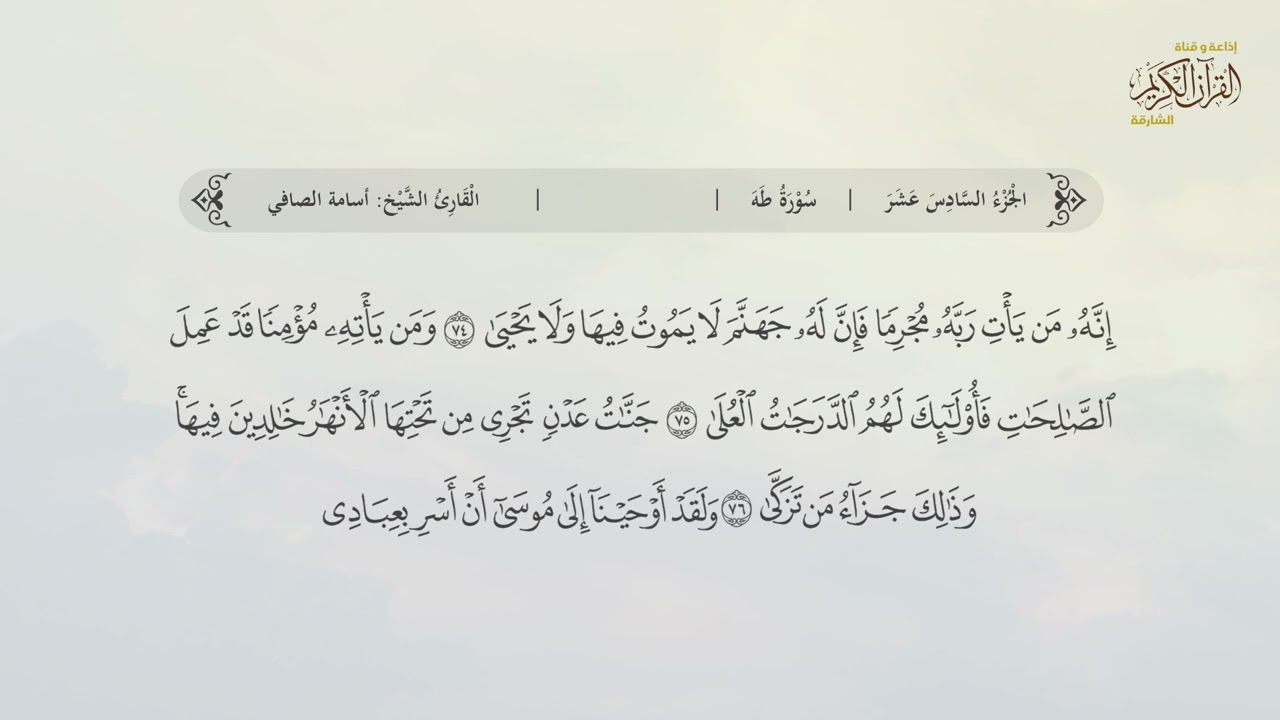 إذاعة و قناة
القرآن الكريم
الشارقة
الْجُزْءُ السَّادِسَ عَشَرَ | سُوْرَةُ طَهَ | | الْقَارِئُ الشَّيْخ: أسامة الصافي
إِنَّهُۥ مَن يَأۡتِ رَبَّهُۥ مُجۡرِمٗا فَإِنَّ لَهُۥ جَهَنَّمَ لَا يَمُوتُ فِيهَا وَلَا يَحۡيَىٰ ٧٤ وَمَن يَأۡتِهِۦ مُؤۡمِنٗا قَدۡ عَمِلَ
ٱلصَّٰلِحَٰتِ فَأُوْلَٰٓئِكَ لَهُمُ ٱلدَّرَجَٰتُ ٱلۡعُلَىٰ ٧٥ جَنَّٰتُ عَدۡنٖ تَجۡرِي مِن تَحۡتِهَا ٱلۡأَنۡهَٰرُ خَٰلِدِينَ فِيهَاۚ
وَذَٰلِكَ جَزَآءُ مَن تَزَكَّىٰ ٧٦ وَلَقَدۡ أَوۡحَيۡنَآ إِلَىٰ مُوسَىٰٓ أَنۡ أَسۡرِ بِعِبَادِي